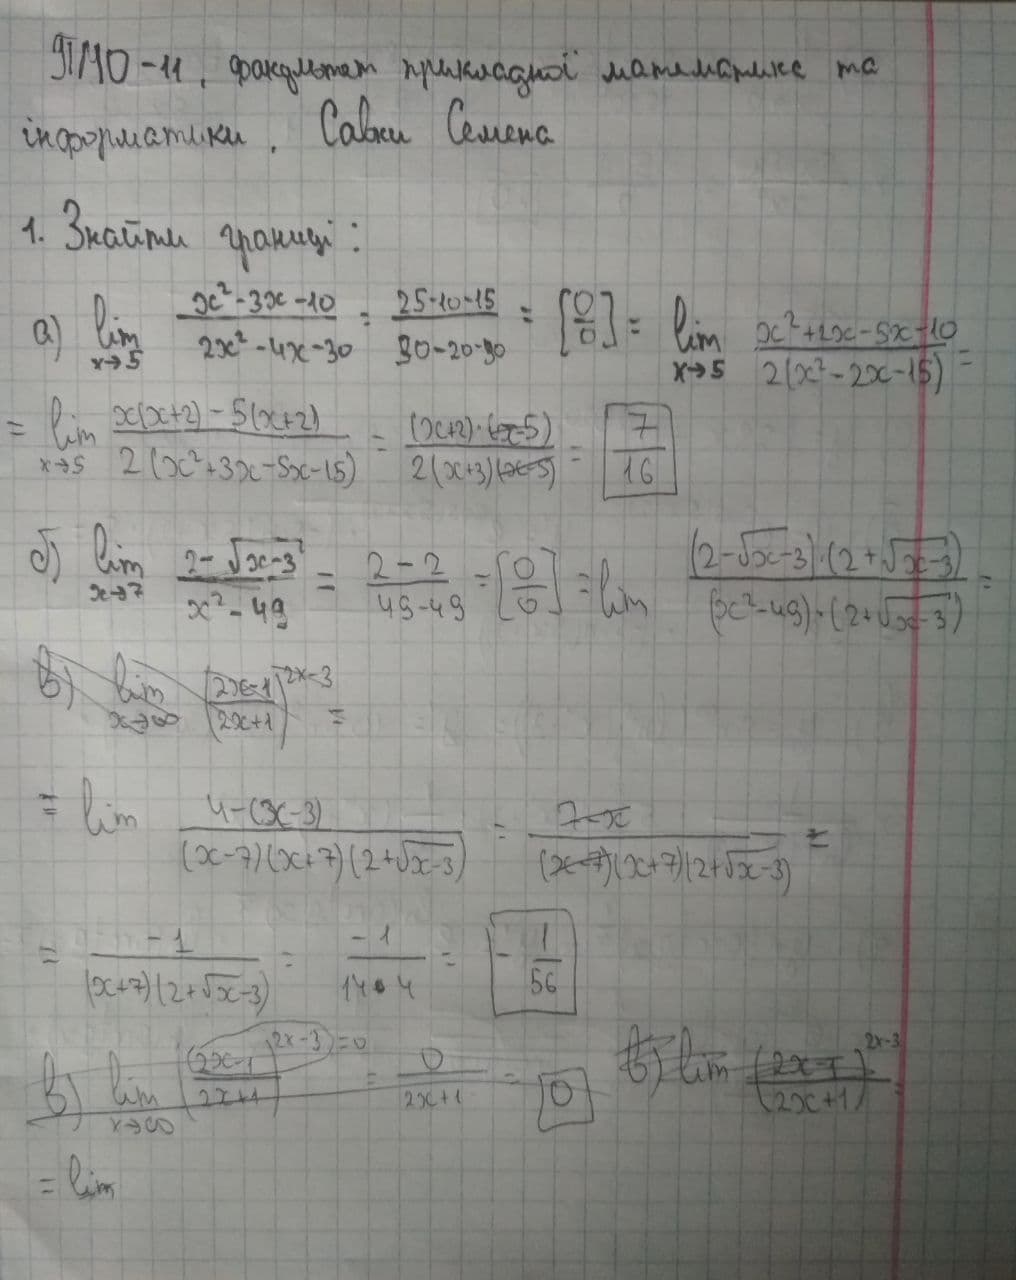 ПМО-11, факультет прикладної математики та
інформатики. Савки Семена
1. Знайти границі:
а) lim x→5 (x²-3x-10)/(2x²-4x-30) = (25-10-15)/(30-20-30) = [0/0] = lim x→5 (x²+2x-5x-10)/(2(x²-2x-15)) =
= lim x→5 (x(x+2)-5(x+2))/(2(x²+3x-5x-15)) = ((x+2)·(x-5))/(2(x+3)(x-5)) = 7/16
б) lim x→7 (2-√(x-3))/(x²-49) = (2-2)/(49-49) = [0/0] = lim ((2-√(x-3))·(2+√(x-3)))/((x²-49)·(2+√(x-3))) =
в) lim x→∞ ((2x-1)/(2x+1))^(2x-3) =
= lim (4-(x-3))/((x-7)(x+7)(2+√(x-3))) = (7-x)/((x-7)(x+7)(2+√(x-3))) =
= -1/((x+7)(2+√(x-3))) = -1/(14·4) = -1/56
в) lim x→∞ ((2x-1)/(2x+1))^(2x-3) =0 = 0/(2x+1) = 0 в) lim ((2x-1)/(2x+1))^(2x-3) =
= lim